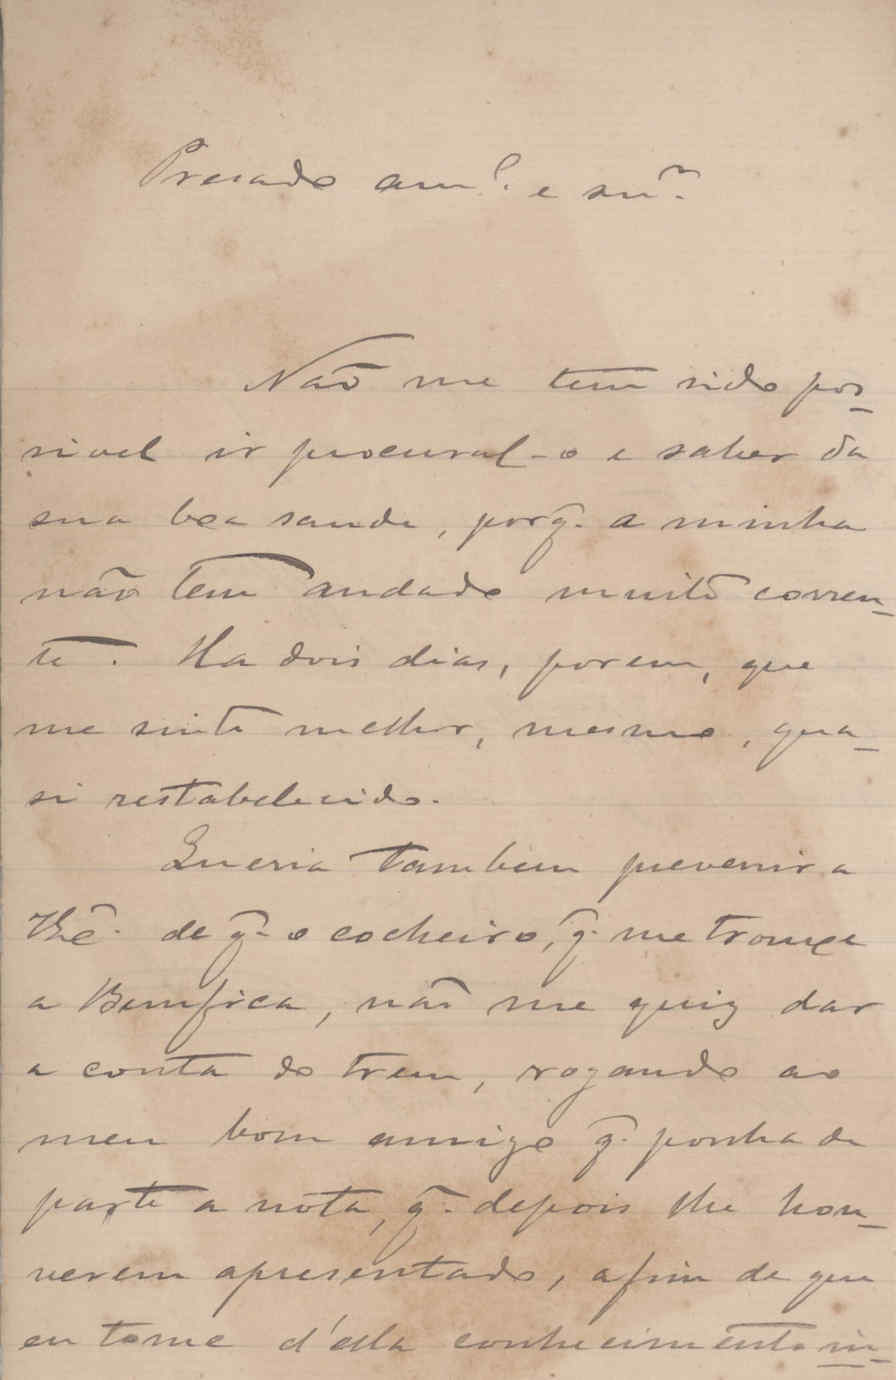 Presado am.º e sñr.
Não me tem sido pos-
sivel ir procural-o e saber da
sua boa saude, porq̃. a minha
não tem andado muito corren-
te. Ha dois dias, porem, que
me sinto melhor, mesmo, qua-
si restabelecido.
Queria tambem prevenir a
V.Ex.ª de q̃. o cocheiro, q̃. me trouxe
a Bemfica, não me quiz dar
a conta do trem, rogando ao
meu bom amigo q̃. ponha de
parte a nota, q̃. depois lhe hou-
verem apresentado, afim de que
eu tome d'ella conhecimento in-